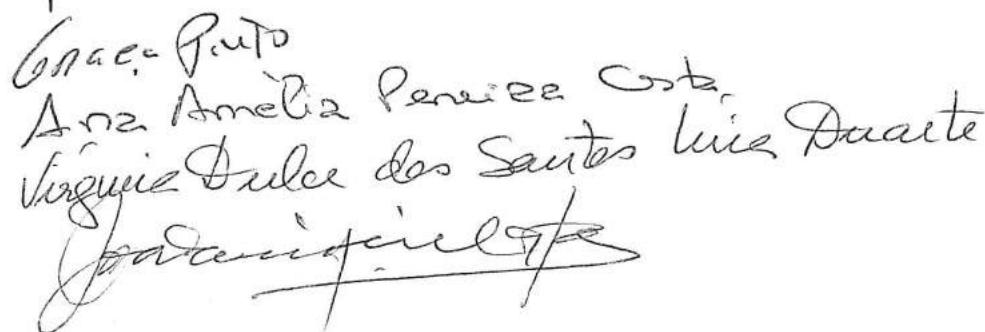 Graça Pinto
Ana Amélia Pereira Costa,
Virginia Dulce dos Santos Luis Duarte